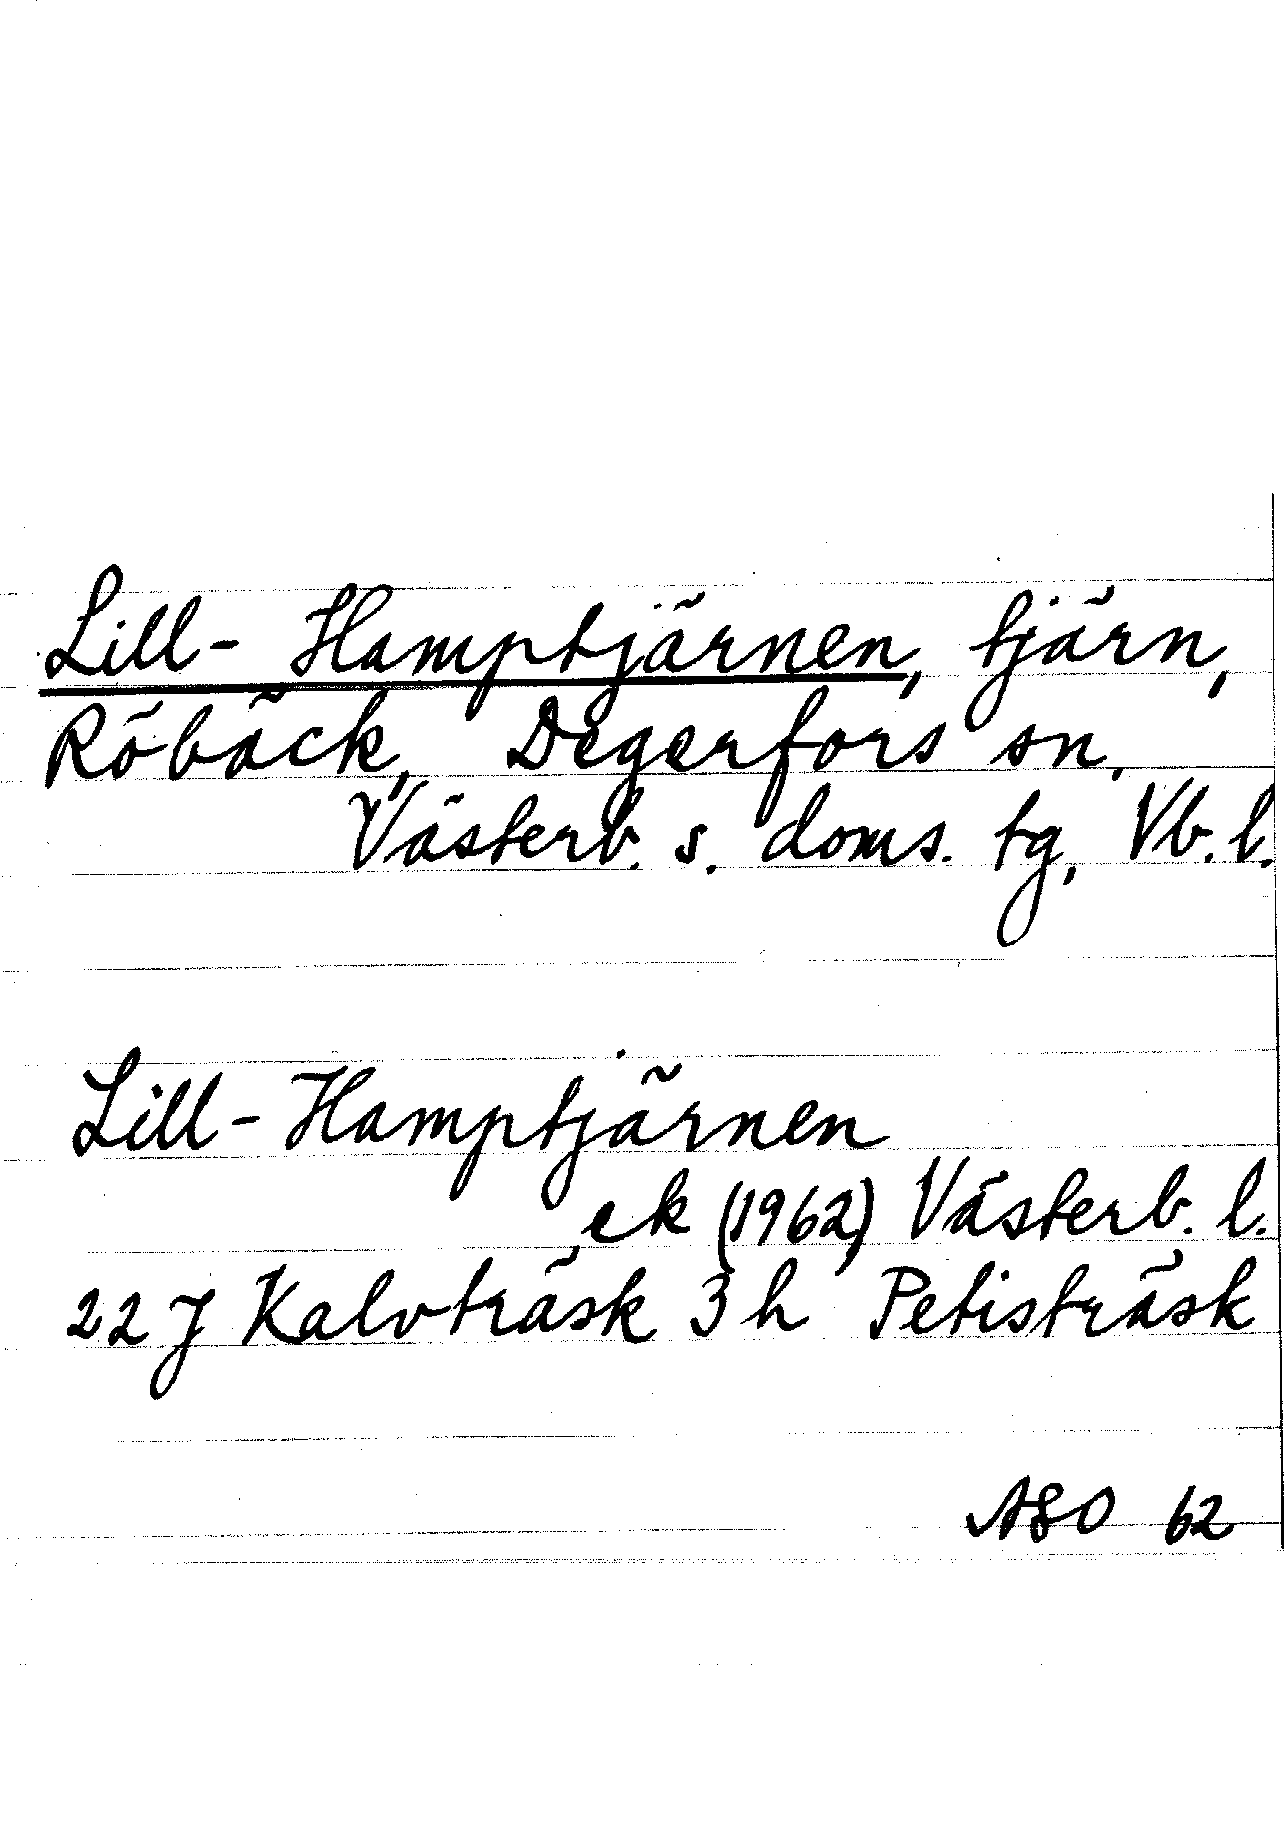 Lill-Hamptjärnen, tjärn,
Röbäck, Degerfors sn,
Västerb. s. doms. tg, Vb. l.
Lill-Hamptjärnen
ek (1962) Västerb. l.
22 J Kalvträsk 3 h Petisträsk
ASO 62